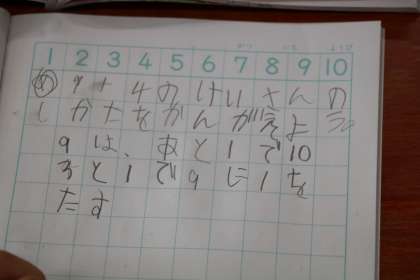 がつ にち ようび
1 2 3 4 5 6 7 8 9 10
め 9+4のけいさんの
しかたをかんがえよう
9は、あと1で10
3と1で9に1を
たす